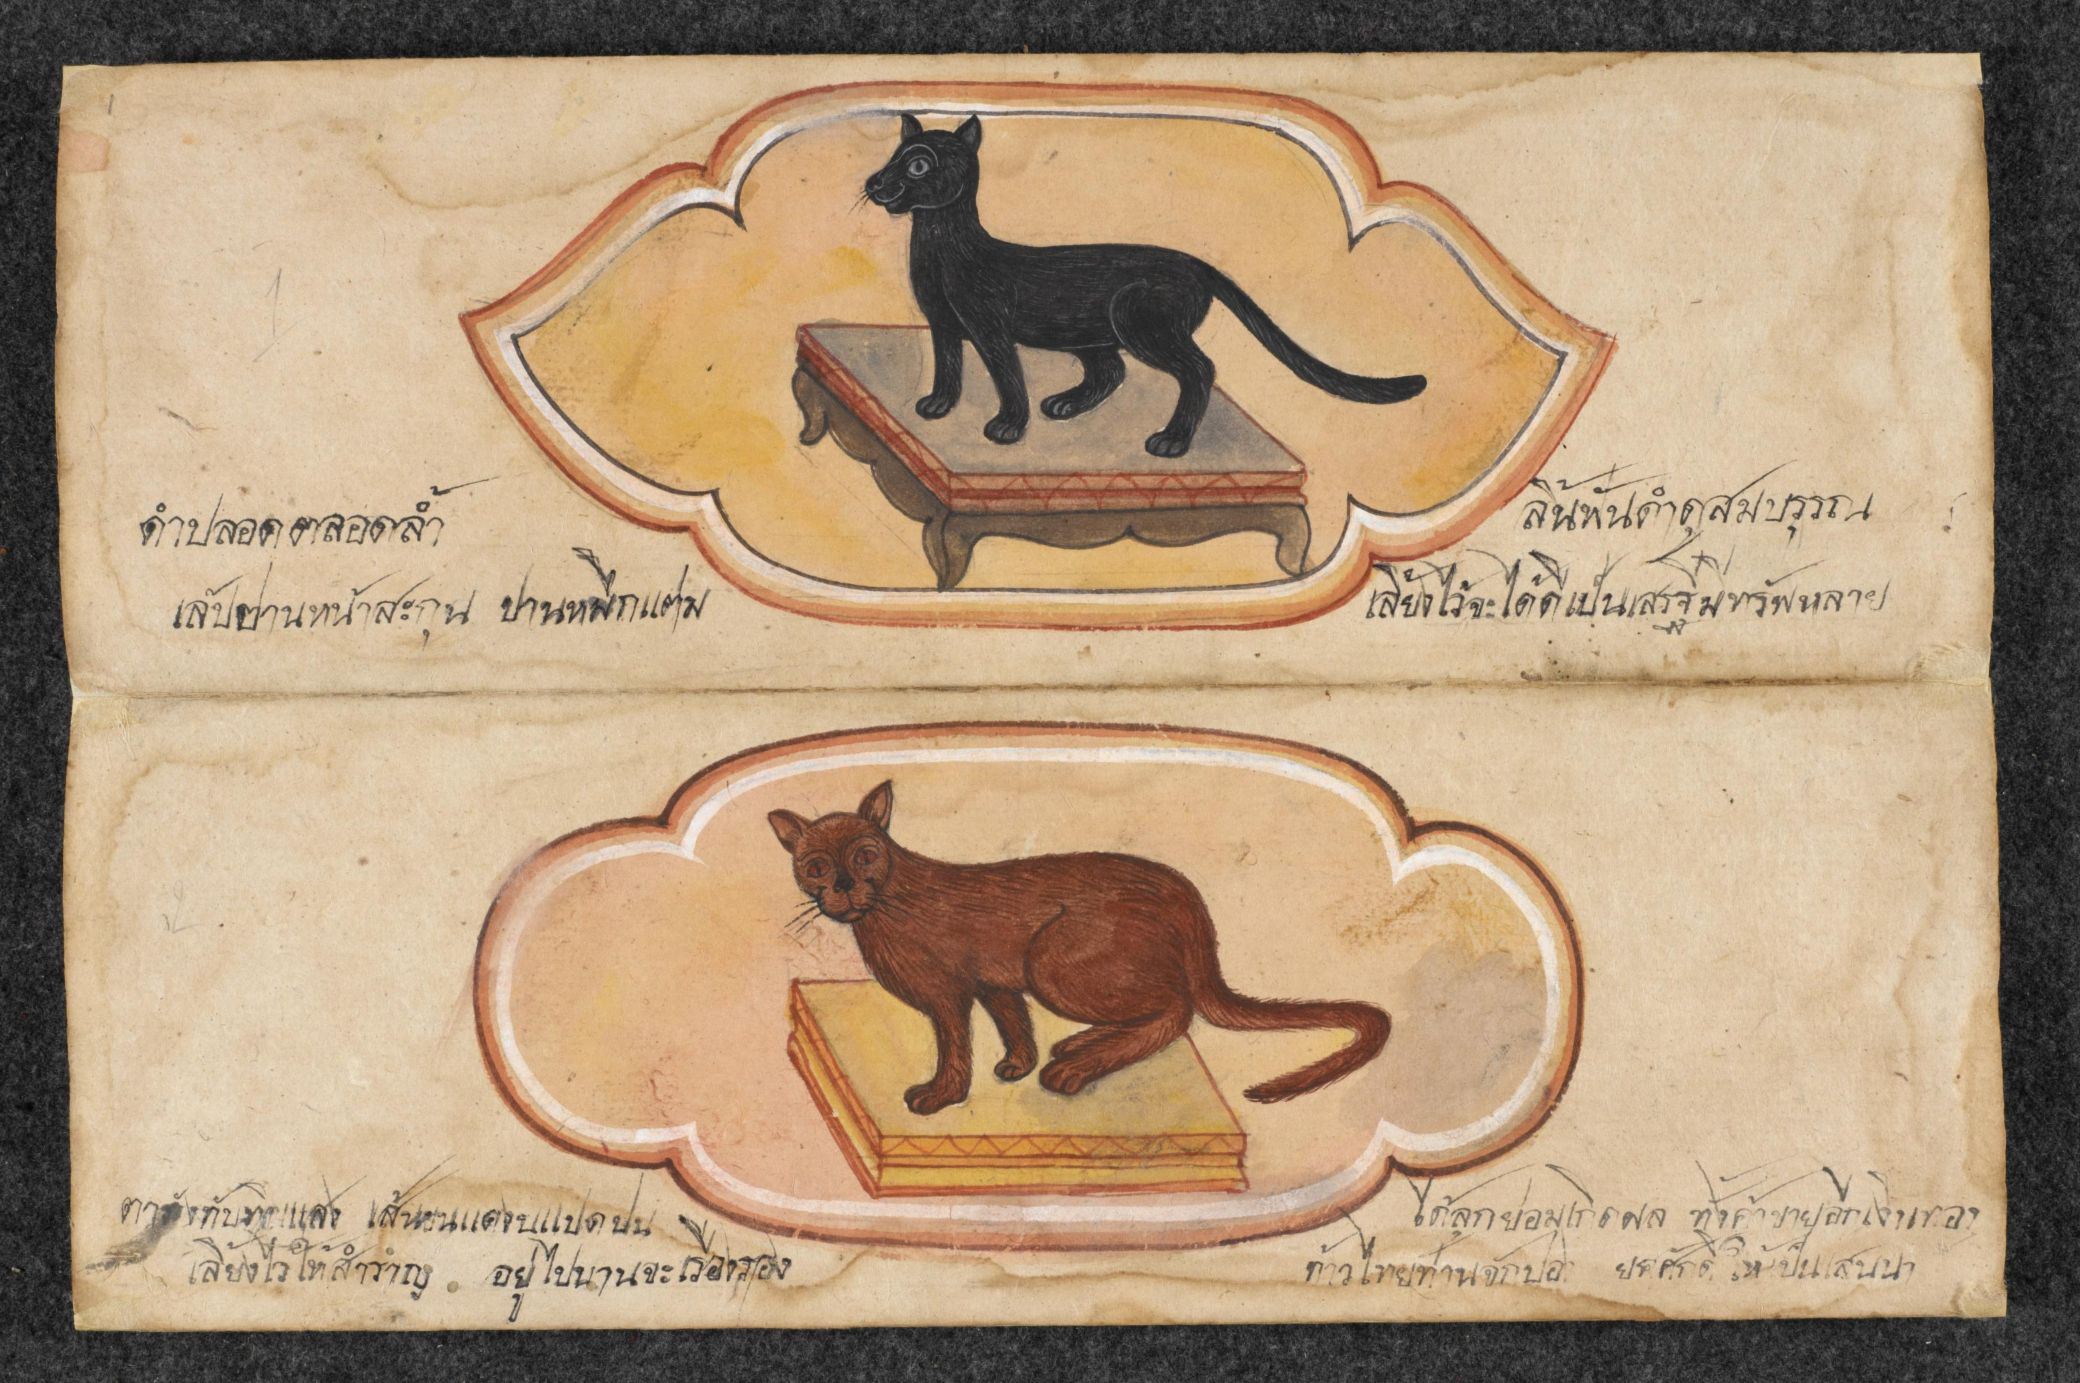 ดำปลอดตลอดลํ้า
ลิ้นฟันดำดุสมบรุรรณ
เล้บตานหน้าสะกุน ปานหมึกแต่ม
เลี้ยงไว้จะได้ดีเป็นเสรฐีมีทรัพหลาย
เส้นขนแดงบแปดปน
ได้ลุกย่อมเกิดผล ทั้งค้าขายอีกเงินทอง
เลี้ยงไว้ให้สำราญ อยู่ไปนานจะเรืองรอง
ท้าวไทยท่านจักปอง ยศศักดิ์ให้เป็นเสนนา